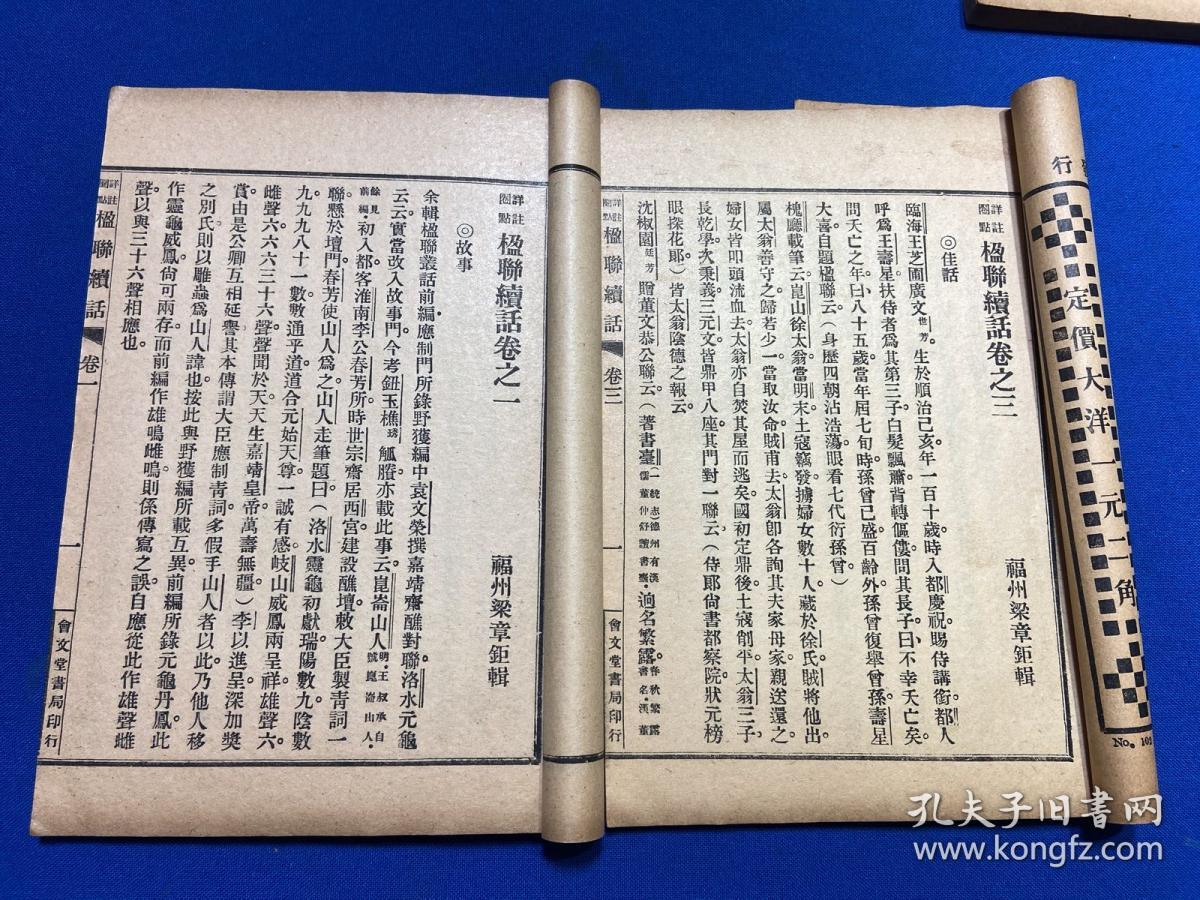 行
定價大洋一元二角
No. 10
詳註
圈點
楹聯續話卷之三
福州梁章鉅輯
◎佳話
臨海王芝圃廣文世芳。生於順治己亥年一百十歲。時入都慶祝賜侍講銜都人
呼爲王壽星扶侍者爲其第三子白髮飄蕭背轉傴僂問其長子曰不幸夭亡矣
問夭亡之年曰八十五歲當年屆七旬時孫曾已盛百齡外孫曾復舉曾孫壽星
大喜自題楹聯云(身歷四朝沾浩蕩眼看七代衍孫曾)
槐廳載筆云崑山徐太翁當明末土寇竊發擄婦女數十人藏於徐氏賊將他出
屬太翁善守之歸若少一當取汝命賊甫去太翁卽各詢其夫家母家親送還之
婦女皆叩頭流血去太翁亦自焚其屋而逃矣國初定鼎後土寇削平太翁三子
長乾學次秉義三元文皆鼎甲八座其門對一聯云(侍郎尙書都察院狀元榜
眼探花郎)皆太翁陰德之報云
沈椒園廷芳贈董文恭公聯云(著書臺(一統志)德州有漢儒董仲舒讀書臺。迥名繁露。春秋繁露書名。漢董
詳註
圈點
楹聯續話
卷三
一
會文堂書局印行
詳註
圈點
楹聯續話卷之一
福州梁章鉅輯
◎故事
余輯楹聯叢話前編應制門所錄野獲編中袁文榮撰嘉靖齋醮對聯洛水元龜
云云實當改入故事門今考鈕玉樵琇觚賸亦載此事云崑崙山人明。王叔承自號崑崙山人。
餘見前編初入都客淮南李公春芳所時世宗齋居西宮建設醮壇敕大臣製青詞一
聯懸於壇門春芳使山人爲之山人走筆題曰(洛水靈龜初獻瑞陽數九陰數
九九九八十一數數通乎道道合元始天尊一誠有感岐山威鳳兩呈祥雄聲六
雌聲六六六三十六聲聲聞於天天生嘉靖皇帝萬壽無疆)李以進呈深加獎
賞由是公卿互相延譽其本傳謂大臣應制青詞多假手山人者以此乃他人移
之別氏則以雕蟲爲山人諱也按此與野獲編所載互異前編所錄元龜丹鳳此
作靈龜威鳳尙可兩存而前編作雄鳴雌鳴則係傳寫之誤自應從此作雄聲雌
聲以與三十六聲相應也
詳註
圈點
楹聯續話
卷一
一
會文堂書局印行
孔夫子旧书网
www.kongfz.com